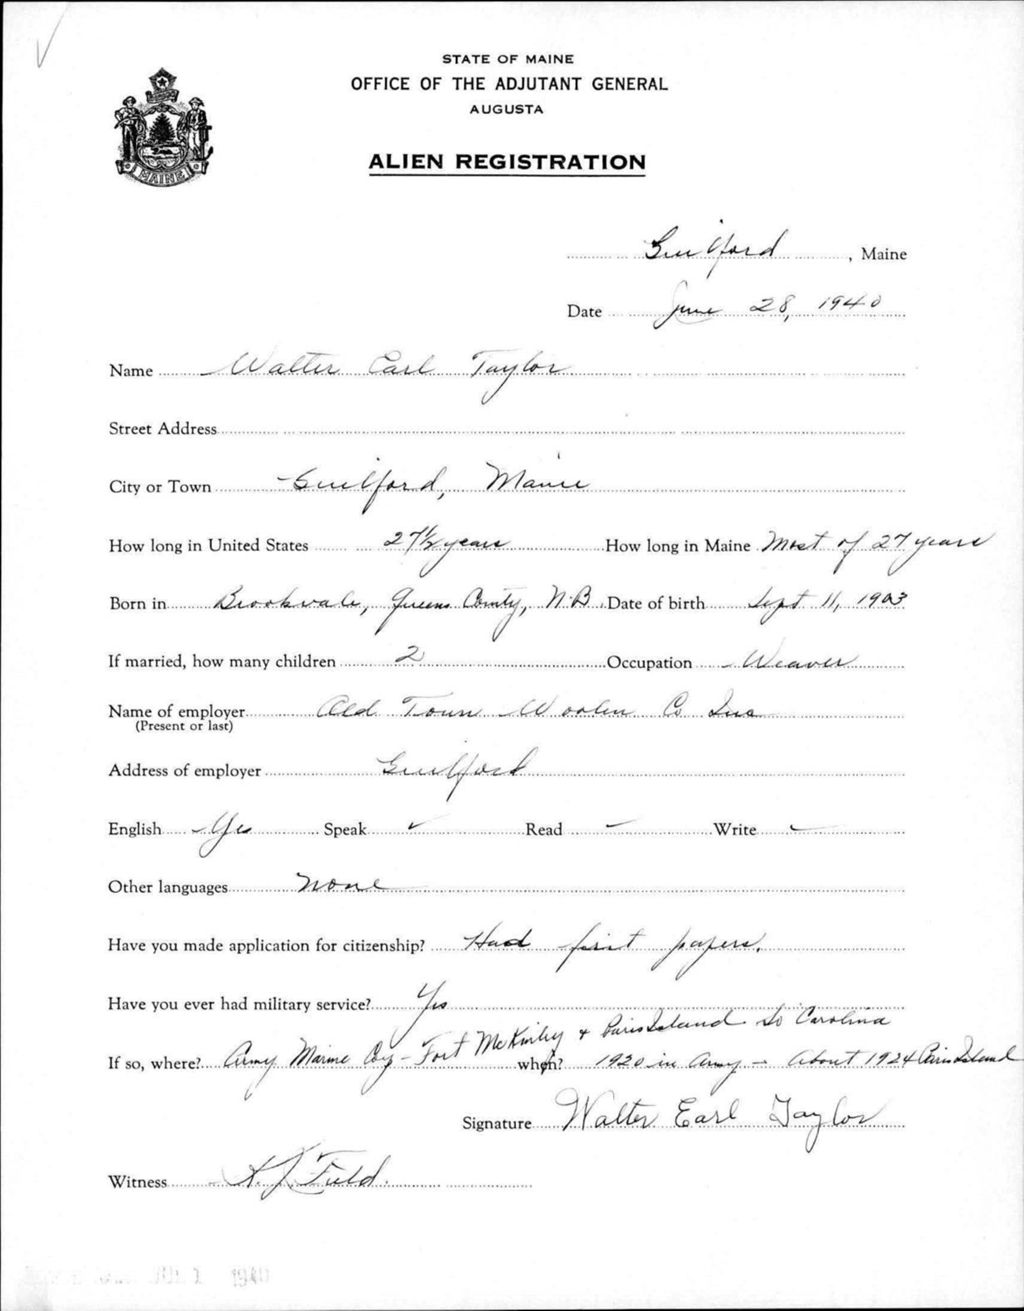 STATE OF MAINE
OFFICE OF THE ADJUTANT GENERAL
AUGUSTA
ALIEN REGISTRATION
MAINE
Guilford, Maine
Date June 28, 1940
Name Walter Earl Taylor
Street Address
City or Town Guilford, Maine
How long in United States 27 1/2 years How long in Maine Most of 27 years
Born in Brookvale, Queens County, N.B. Date of birth Sept 11, 1903
If married, how many children 2 Occupation Weaver
Name of employer Old Town Woolen Co Inc
(Present or last)
Address of employer Guilford
English Yes Speak ✓ Read ✓ Write ✓
Other languages none
Have you made application for citizenship? Had first papers.
Have you ever had military service? Yes
If so, where? Army Marine - Fort McKinley + Paris Island So Carolina when? 1920 in Army - About 1924 Paris Island
Signature Walter Earl Taylor
Witness Field
1940